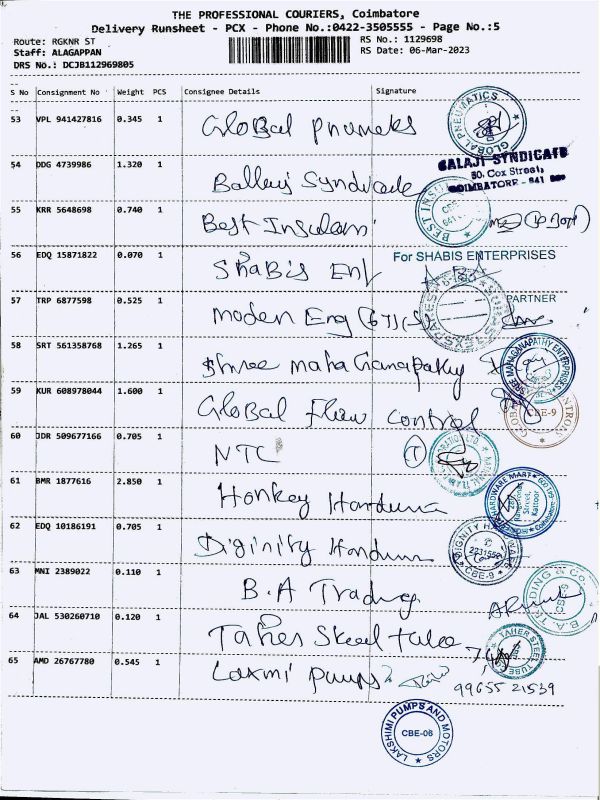 THE PROFESSIONAL COURIERS, Coimbatore
Delivery Runsheet - PCX - Phone No.:0422-3505555 - Page No.:5
Route: RGKNR ST
RS No.: 1129698
Staff: ALAGAPPAN
RS Date: 06-Mar-2023
DRS No.: DCJB112969805
S No Consignment No Weight PCS Consignee Details Signature
53 VPL 941427816 0.345 1 Global Pnumeks
GLOBAL PNEUMATICS
54 DDG 4739986 1.320 1 Balleji Syndicate
BALAJI SYNDICATE
80, Cox Street,
COIMBATORE - 641
55 KRR 5648698 0.740 1 Best Insulam
BEST INSU
CBE
641
56 EDQ 15871822 0.070 1 Shabis Ent
For SHABIS ENTERPRISES
PARTNER
57 TRP 6877598 0.525 1 Moden Eng (67)
58 SRT 561358768 1.265 1 Shree maha Ganapathy
SHREE MAHAGANAPATHY ENTERPRISES
59 KUR 608978044 1.600 1 Global Flow Control
GLOBAL CONTROL
CBE-9
60 JDR 509677166 0.705 1 NTC
61 BMR 1877616 2.850 1 Honkey Harduna
HARDWARE MART
Street,
Kattoor
62 EDQ 10186191 0.705 1 Diginity Hardum
DIGNITY HARDWARE
2231552
CBE-9
63 MNI 2389022 0.110 1 B.A Trading
B.A. TRADING & CO.
CBE
64 JAL 530260710 0.120 1 Taher Steel tube
TAHER STEEL TUBE
65 AMD 26767780 0.545 1 Laxmi Pumps
99655 21539
LAKSHMI PUMPS AND MOTORS
CBE-06